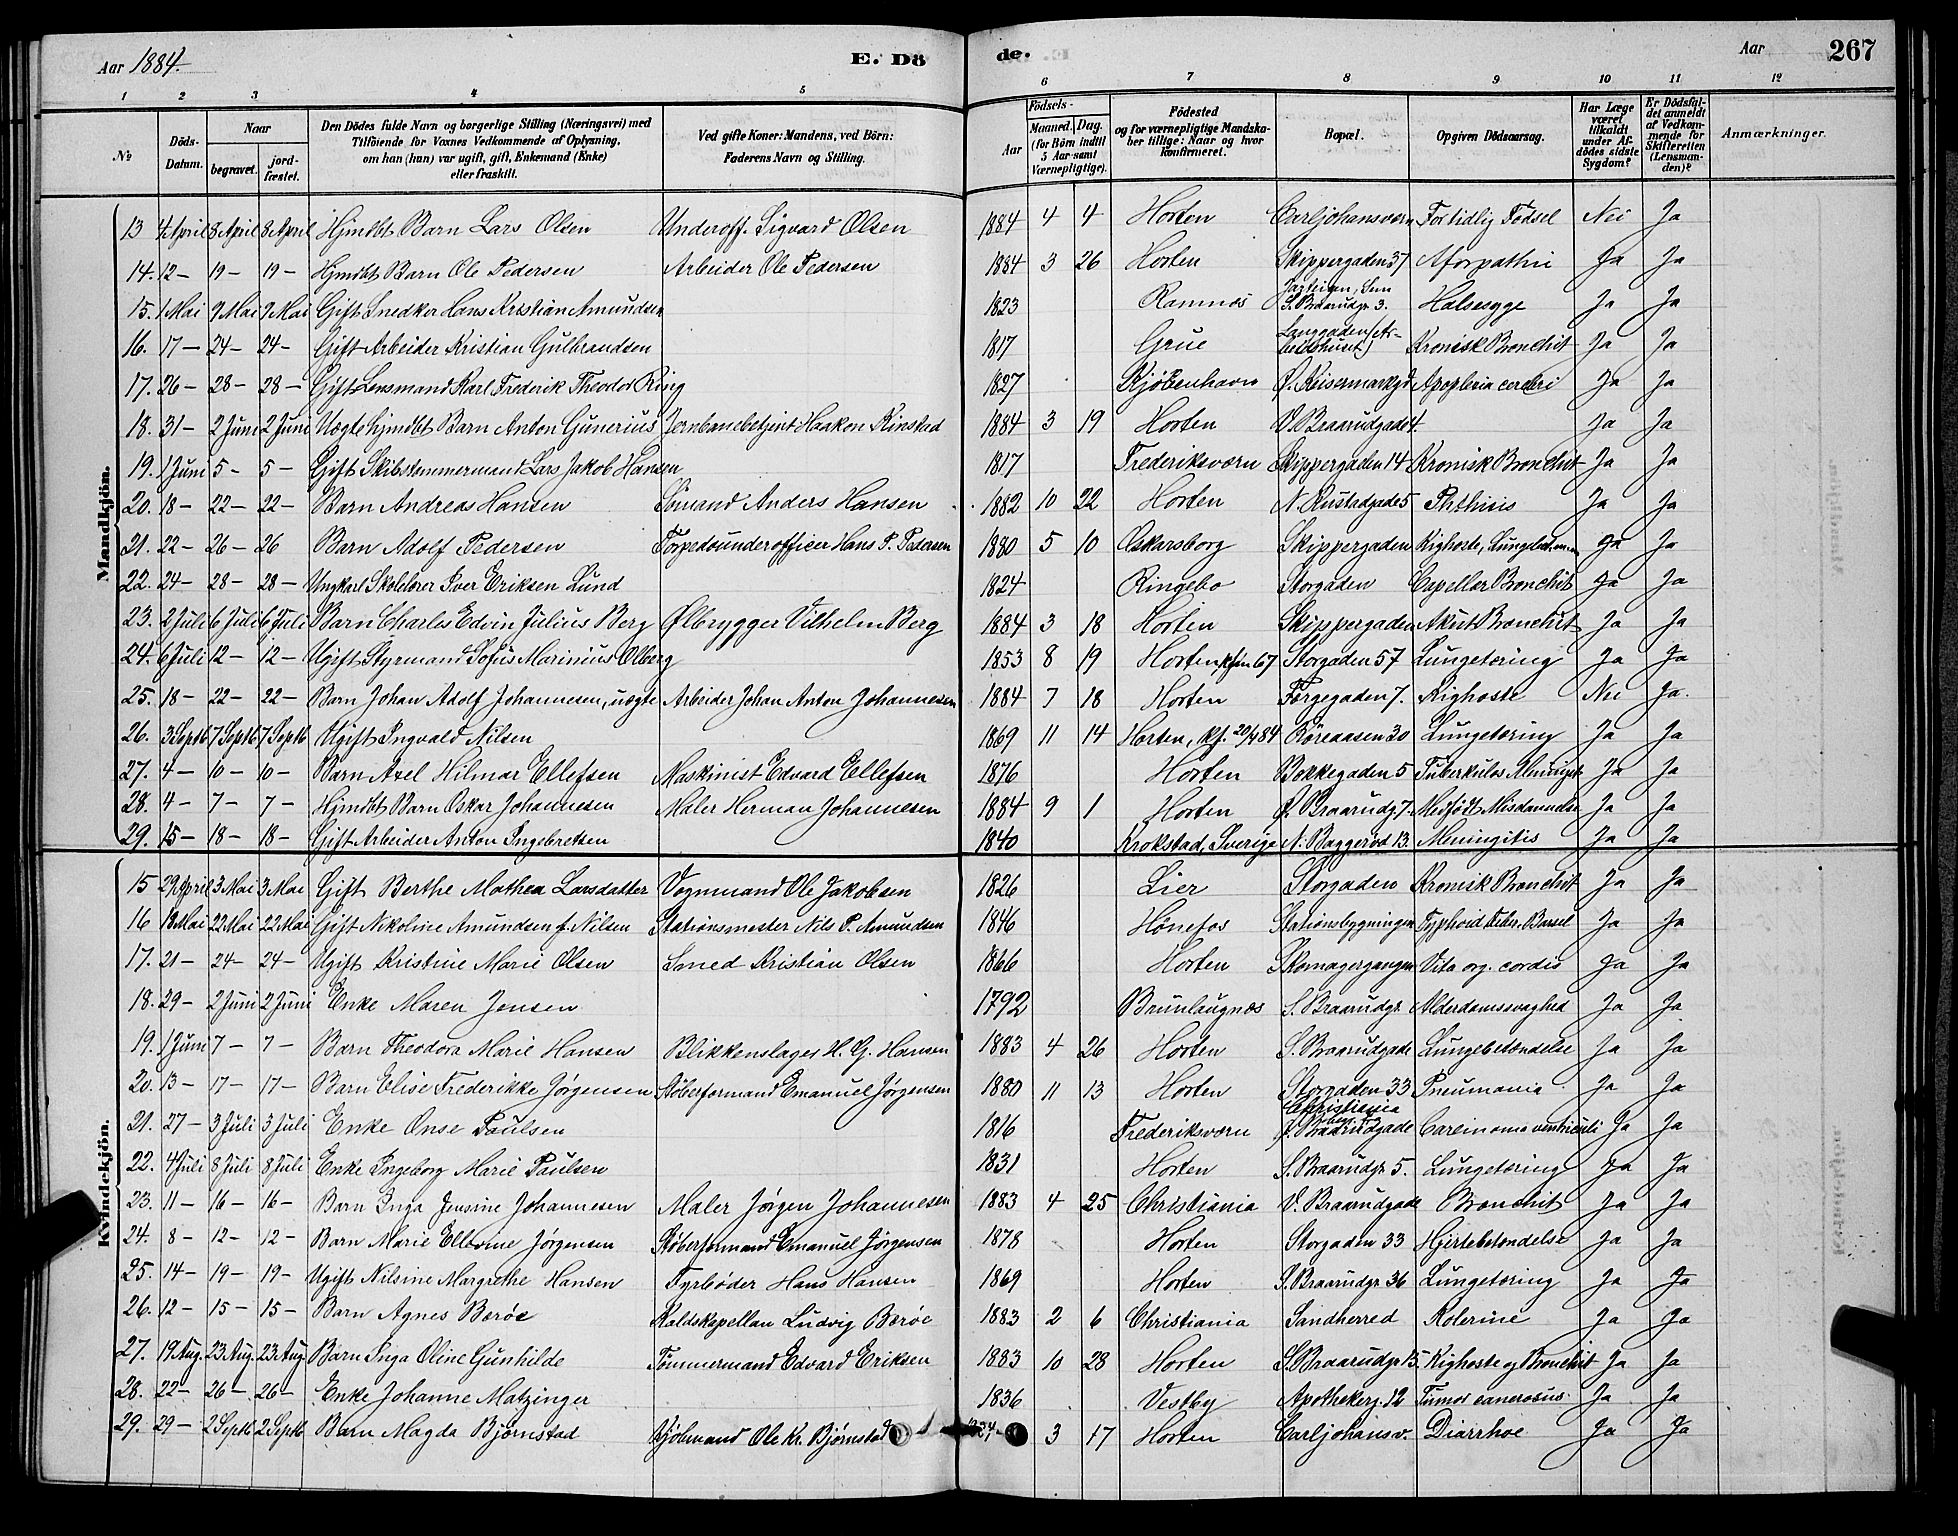 Aar 1884. E. Dö de. Aar 267
1 2 3 4 5 6 7 8 9 10 11 12
No
Döds-Datum.
Naar
begravet.
jord-fæstet.
Den Dödes fulde Navn og borgerlige Stilling (Næringsvei) med
Tilföiende for Voxnes Vedkommende af Oplysning,
om han (hun) var ugift, gift, Enkemand (Enke)
eller fraskilt.
Ved gifte Koner: Mandens, ved Börn:
Faderens Navn og Stilling.
Födsels-
Aar
Maaned. Dag.
(for Börn indtil
5 Aar samt
Værnepligtige).
Födested
og for værnepligtige Mandska-
ber tillige: Naar og hvor
konfirmeret.
Bopæl.
Opgiven Dödsaarsag.
Har Læge
været
tilkaldt
under Af-
dödes sidste
Sygdom?
Er Dödsfal-
det anmeldt
af Vedkom-
mende for
Skifteretten
(Lensman-
den)?
Anmærkninger.
Mandkjön.
13 4 April 8 April 8 April Hjmdbt Barn Lars Olsen Underoff. Sigvard Olsen 1884 4 4 Horten Carljohansværn For tidlig Fødsel Nei Ja
14. 12 – 19 – 19 – Hjmdbt Barn Ole Pedersen Arbeider Ole Pedersen 1884 3 26 Horten Skippergaden 37 Ja Ja
15. 1 Mai 9 Mai 9 Mai Gift Snedker Hans Kristian Amundsen 1823 Ramnæs S. Braarudgr. 3. Halsesyge Ja Ja
16. 17 – 24 – 24 – Gift Arbeider Kristian Gulbrandsen 1817 Grue Langgaden (Ar-beidshuset) Kronisk Bronchit Ja Ja
17. 26 – 28 – 28 – Gift Lensmand Karl Frederik Theodor Ring 1827 Kjöbenhavn Ø. Keisermarkgd Apoplexia cerebri Ja Ja
18. 31 – 2 Juni 2 Juni Uægte hjmdbt Barn Anton Gunerius Jernbanebetjent Haakon Rinstad 1884 3 19 Horten V. Braarudgade 4. Ja Ja
19. 1 Juni 5 – 5 – Gift Skibstømmermand Lars Jakob Hansen 1817 Frederiksværn Skippergaden 14 Kronisk Bronchit Ja Ja
20. 18 – 22 – 22 – Barn Andreas Hansen Sømand Anders Hansen 1882 10 22 Horten N. Rustadgade 5 Phthisis Ja Ja
21. 22 – 26 – 26 Barn Adolf Pedersen Torpedounderofficer Hans P. Pedersen 1880 5 10 Oskarsborg Skippergaden Kighoste, Ja Ja
22. 24 – 28 – 28 – Ungkarl Skolelærer Iver Eriksen Lund 1824 Ringebo Storgaden Capellær Bronchit Ja Ja
23. 2 Juli 6 Juli 6 Juli Barn Charles Edvin Julius Berg Ølbrygger Vilhelm Berg 1884 3 18 Horten Skippergaden Akut Bronchit Ja Ja
24. 6 Juli 12 – 12 – Ugift Styrmand Sofus Marinius Olberg 1853 8 19 Horten Storgaden 57 Lungetæring Ja Ja
25. 18 – 22 – 22 – Barn Johan Adolf Johannesen, uægte Arbeider Johan Anton Johannesen 1884 7 18 Horten Færgegaden 7. Kighoste Nei Ja.
26. 3 Septb 7 Septb 7 Septb Ugift Ingvald Nilsen 1869 11 14 Horten, kf. 20/4 84 Røreaasen 30 Lungetæring Ja Ja
27. 4 – 10 – 10 – Barn Axel Hilmar Ellefsen Maskinist Edvard Ellefsen 1876 Horten Bakkegaden 5 Tuberkuløs Meningit Ja Ja
28. 4 – 7 – 7 – Hjmdbt Barn Oskar Johannesen Maler Herman Johannesen 1884 9 1 Horten Ø. Braarudg. 7 Medfødt Misdannelse Ja Ja
29. 15 – 18 – 18 – Gift Arbeider Anton Ingebretsen 1840 Krokstad, Sverige N. Baggerød 13. Meningitis Ja Ja
Kvindekjön.
15 29 April 3 Mai 3 Mai Gift Berthe Mathea Larsdatter Vognmand Ole Jakobsen 1826 Lier Storgaden Kronisk Bronchit Ja Ja
16 18 Mai 22 Mai 22 Mai Gift Nikoline Amundsen f. Nilsen Stationsmester Nils P. Amundsen 1846 Hønefos Stationsbygningen Typhoid Feber. Barsel Ja Ja
17. 21 – 24 – 24 – Ugift Kristine Marie Olsen Smed Kristian Olsen 1866 Horten Skomagergangen Vita org. cordis Ja Ja
18. 29 – 2 Juni 2 Juni Enke Maren Jensen 1792 Brunlaugnæs S. Braarudgr. Alderdomssvaghed Ja Ja
19. 1 Juni 7 – 7 – Barn Theodora Marie Hansen Blikkenslager H. G. Hansen 1883 4 26 Horten S. Braarudgade Lungebetændelse Ja Ja
20. 13 – 17 – 17 – Barn Elise Frederikke Jørgensen Støberformand Emanuel Jørgensen 1880 11 13 Horten Storgaden 33 Pneumonia Ja Ja
21. 27 – 3 Juli 3 Juli Enke Onse Paulsen 1816 Frederiksværn Christiania Braarudgade Carcinoma ventriculi Ja Ja
22. 4 Juli 8 Juli 8 Juli Enke Ingeborg Marie Paulsen 1831 Horten S. Braarudgr. 5. Lungetæring Ja Ja
23. 11 – 16 – 16 – Barn Inga Jensine Johannesen Maler Jørgen Johannesen 1883 4 25 Christiania V. Braarudgade Bronchit Ja Ja
24. 8 – 12 – 12 – Barn Marie Ellevine Jørgensen Støberformand Emanuel Jørgensen 1878 Horten Storgaden 33 Hjertebetændelse Ja Ja
25. 14 – 19 – 19 – Ugift Nilsine Margrethe Hansen Fyrbøder Hans Hansen 1869 Horten S. Braarudgr. 36 Lungetæring Ja Ja
26. 12 – 15 – 15 – Barn Agnes Barøe Kaldskapellan Ludvig Barøe 1883 2 6 Christiania Sandherred Kolerine Ja Ja
27. 19 Aug. 23 Aug. 23 Aug. Barn Inga Oline Gunhilde Tømmermand Edvard Eriksen 1883 10 28 Horten S. Braarudgr 15. Kighoste og Bronchit Ja Ja
28. 22 – 26 – 26 – Enke Johanne Matzinger 1836 Vestby Apothekerg. 12 Tumor cancrosus Ja Ja
29. 29 – 2 Septb 2 Septb Barn Magda Bjørnstad Ole Kr. Bjørnstad 3 17 Horten Carljohansv. Diarrhoe Ja Ja